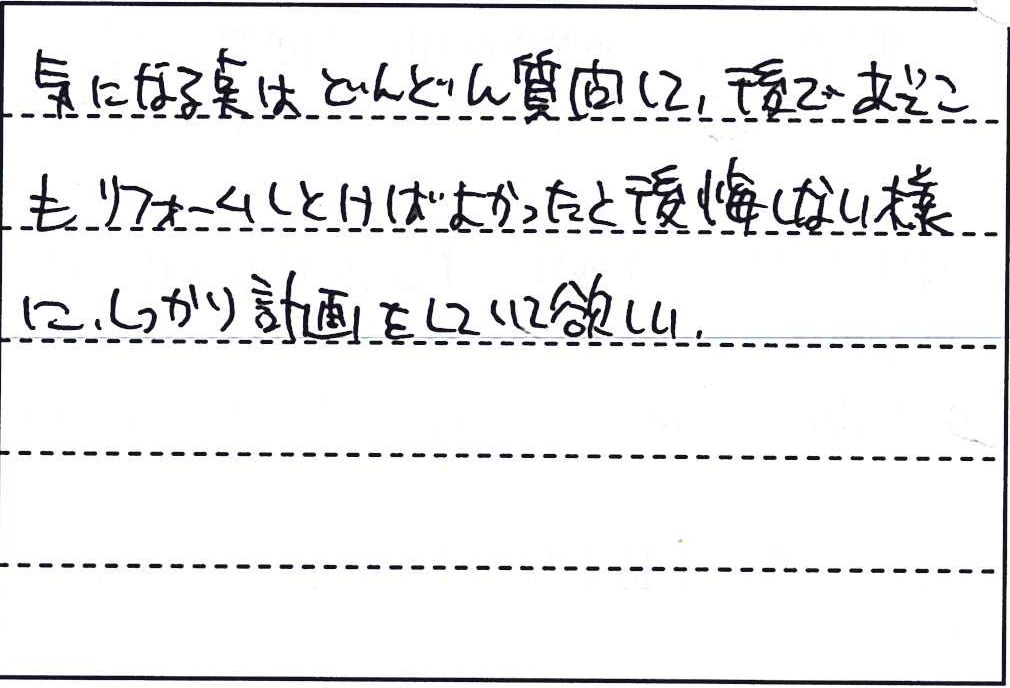 気になる点はどんどん質問して、後であそこ
もリフォームしとけばよかったと後悔しない様
に、しっかり計画をしていて欲しい。